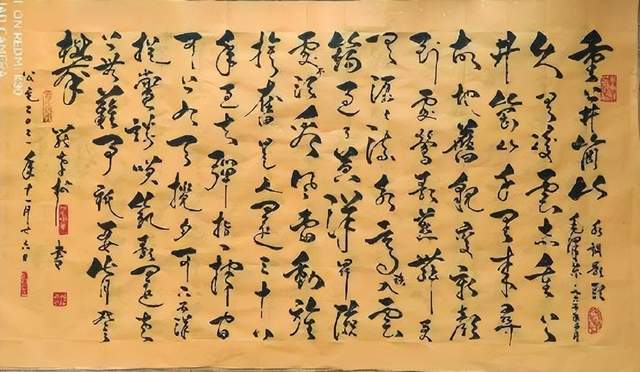 重上井冈山
水调歌头
毛泽东一九六五年五月
久有凌雲志重上
井冈山千里来寻
故地舊貌变新颜
到处莺歌燕舞更
有潺潺流水高路入雲
端过了黄洋界险
处不须看风雷動旌
旗奮是人寰三十八
年过去彈指一挥间
可上九天攬月可下五洋
捉鳖谈笑凯歌还世
上无難事只要肯登
攀
公元二〇二一年十一月廿六日
书
ON REDMI K30
AI CAMERA